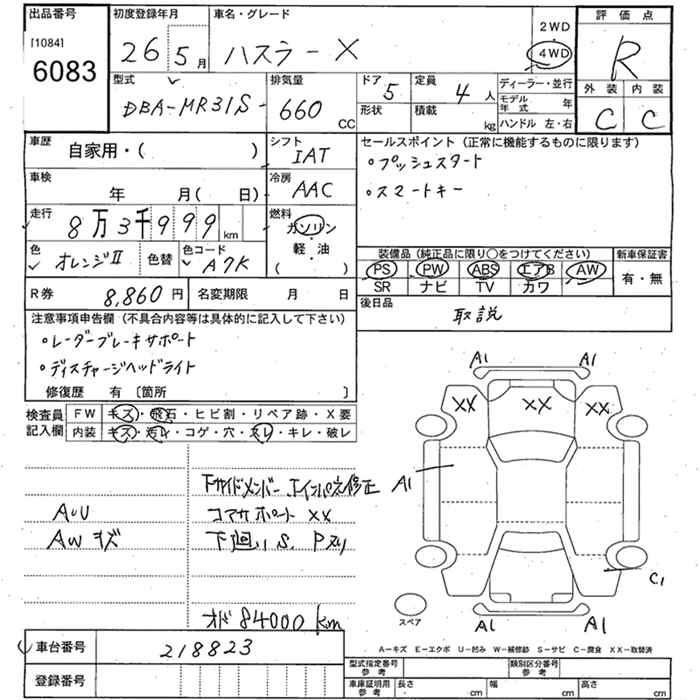 出品番号 初度登録年月 車名・グレード 評価点
[1084] 2WD
6083 26 5月 ハスラーX 4WD R
型式 排気量 ドア 定員 ディーラー・並行 外装 内装
DBA-MR31S 660 CC 5 4人 モデル年式 年 C C
形状 積載 kg ハンドル 左・右
車歴 自家用・( ) シフト IAT セールスポイント (正常に機能するものに限ります)
。プッシュスタート
車検 年 月( 日) 冷房 AAC 。スマートキー
走行 8万3千999km 燃料 ガソリン・軽・油 ( )
色 オレンジII 色替 色コード A7K 装備品 (純正品に限り〇をつけてください) 新車保証書
PS PW ABS エアB AW 有・無
R券 8,860円 名変期限 月 日 SR ナビ TV カワ
注意事項申告欄 (不具合内容等は具体的に記入して下さい) 後日品 取説
。レーダーブレーキサポート
。ディスチャージヘッドライト
修復歴 有 〔箇所 〕
検査員 FW キズ・飛石・ヒビ割・リペア跡・X要
記入欄 内装 キズ・汚レ・コゲ・穴・スレ・キレ・破レ
A1 A1
XX XX XX
修正 A1
AUU コアサポート XX
AWキズ 下廻り S. Pスリ
C1
スペア
オド 84000 km A1 A1
車台番号 218823 A-キズ E-エクボ U-凹み W-補修跡 S-サビ C-腐食 XX-取替済
型式指定番号 参考 類別区分番号 参考
登録番号 車庫証明用 参考 長さ cm 幅 cm 高さ cm